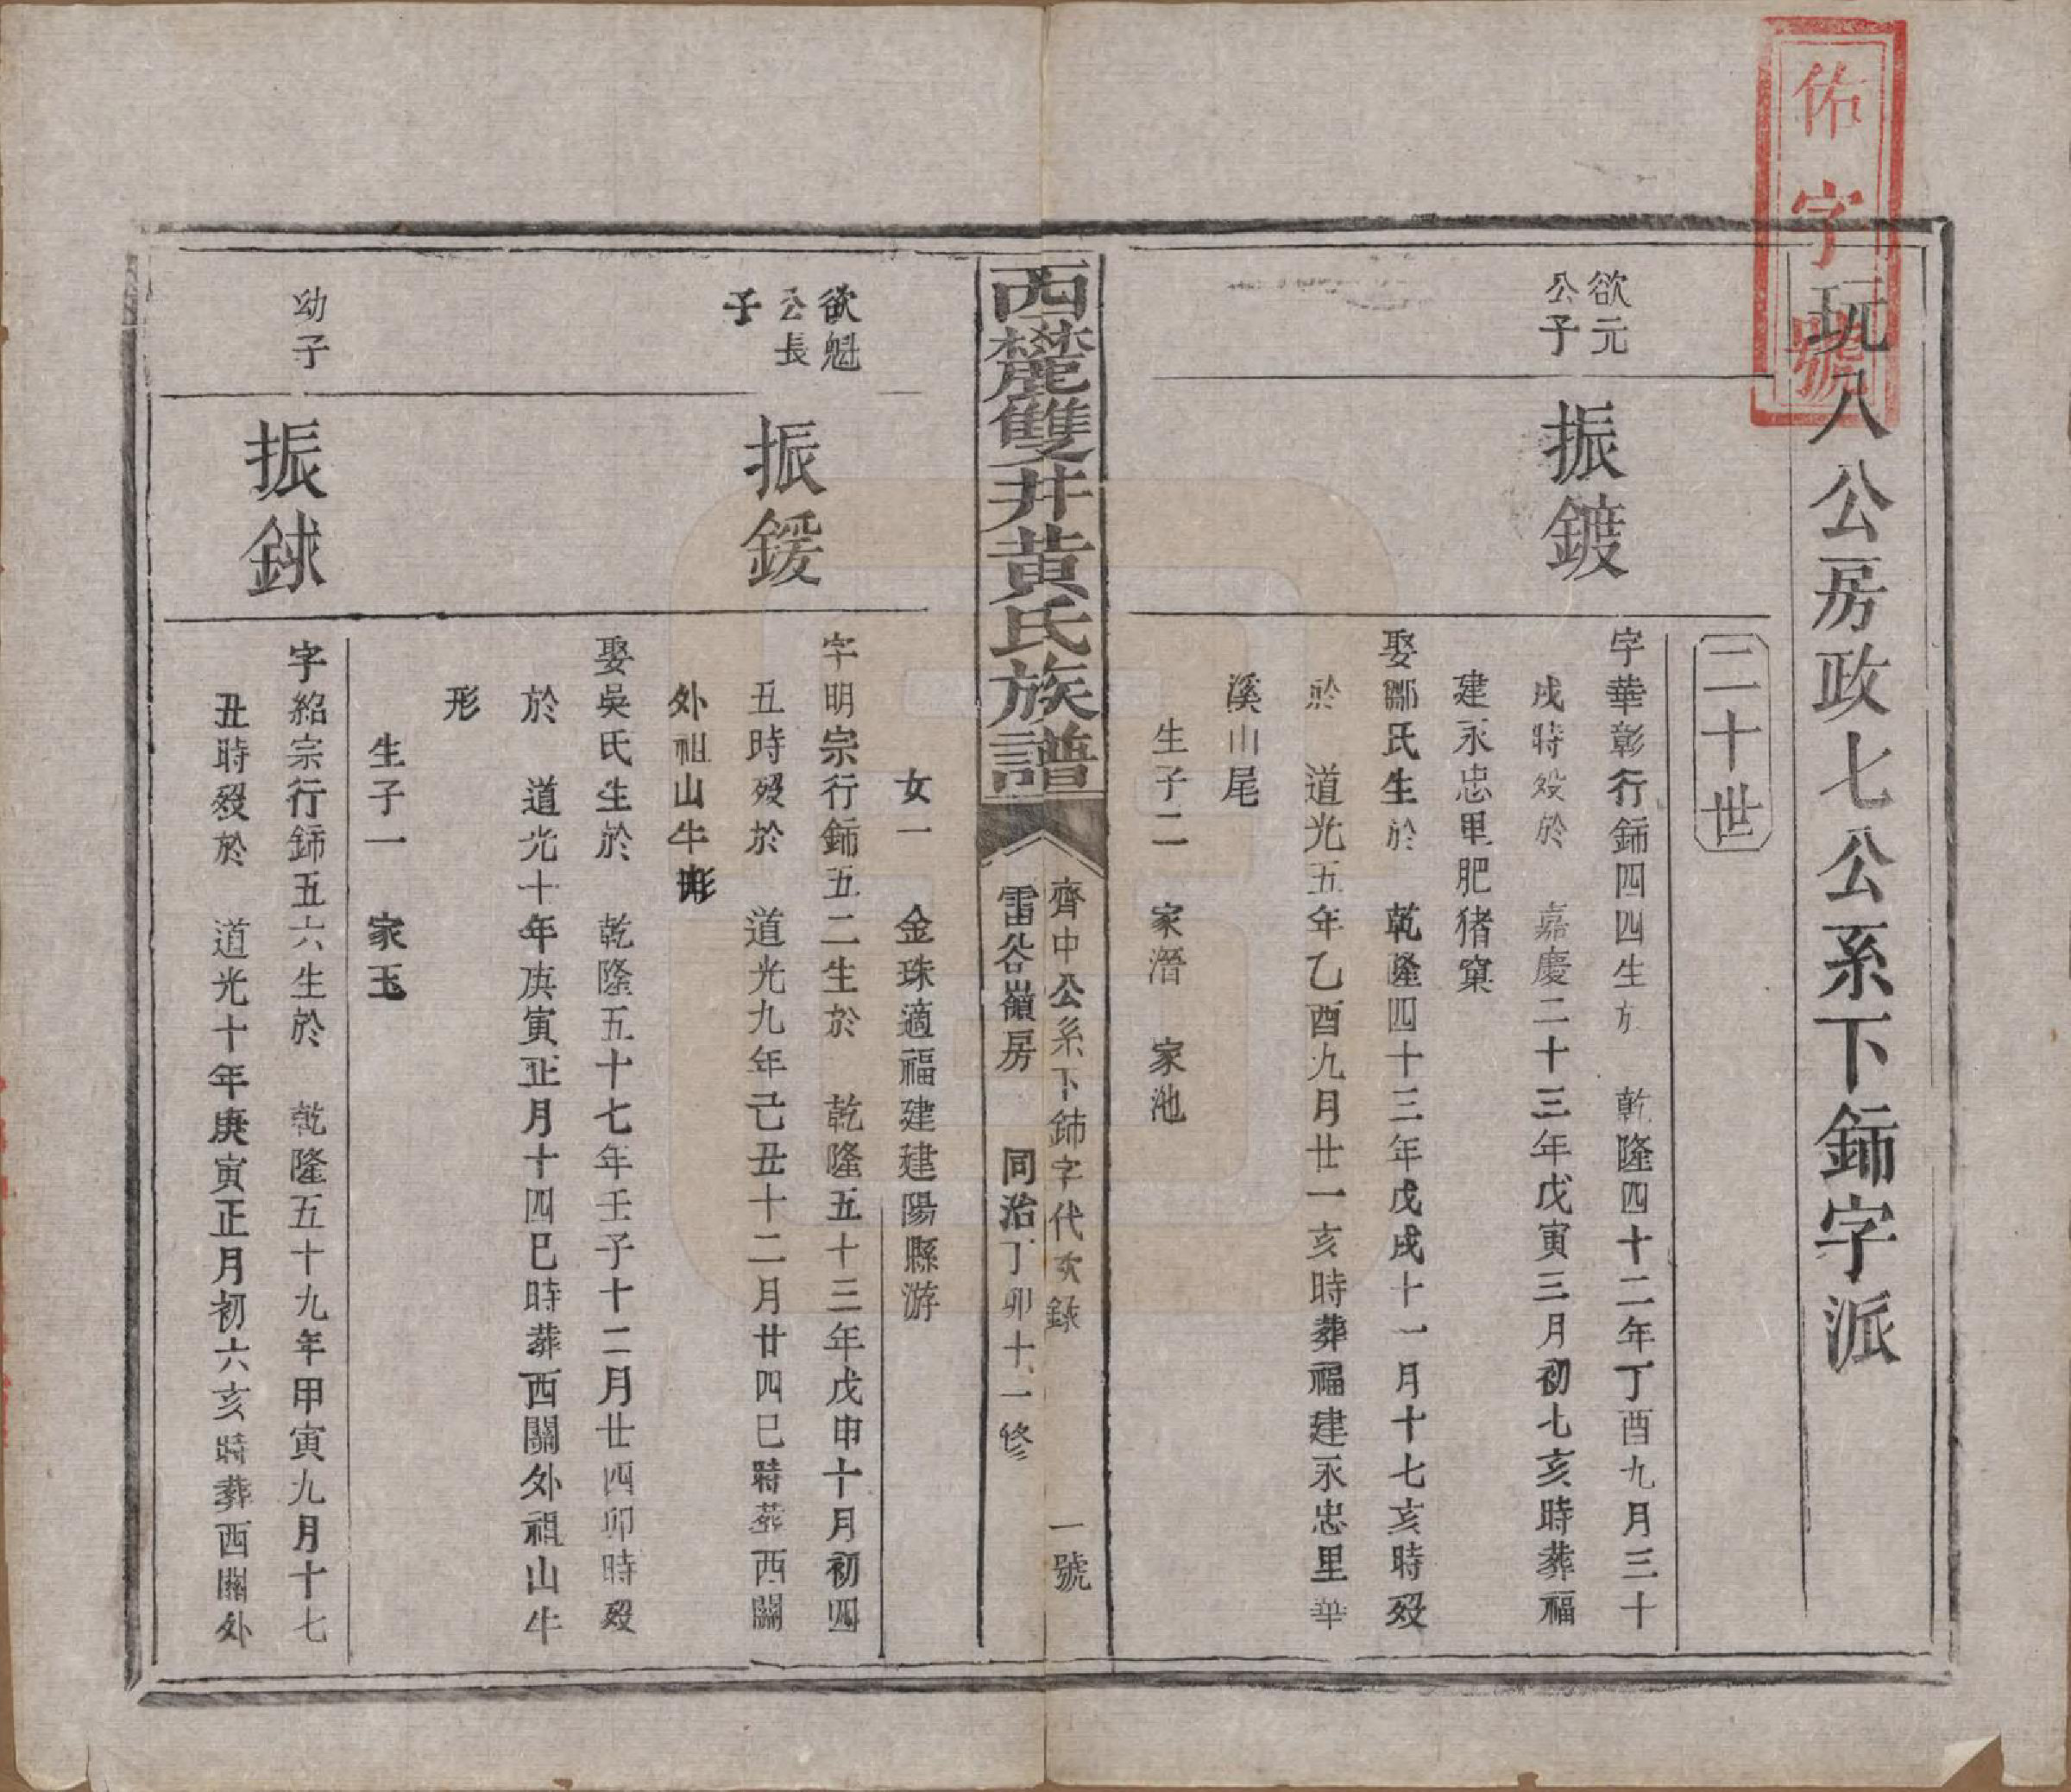 佑字號
玩八公房政七公系下鈰字派
二十世
欲元
公子
振鍍
字華彰行鈰四四生於 乾隆四十二年丁酉九月三十
戌時歿於 嘉慶二十三年戊寅三月初七亥時葬福
建永忠里肥猪窠
娶鄒氏生於 乾隆四十三年戊戌十一月十七亥時歿
於 道光五年乙酉九月廿一亥時葬福建永忠里華
溪山尾
生子二 家潛 家池
西麓雙井黃氏族譜
齊中公系下鈰字代次錄 一號
雷谷嶺房 同治丁卯十一修
女一 金珠適福建建陽縣游
欲魁
公長
子
振鍰
字明宗行鈰五二生於 乾隆五十三年戊申十月初四
丑時歿於 道光九年己丑十二月廿四巳時葬西關
外祖山牛形
娶吳氏生於 乾隆五十七年壬子十二月廿四卯時歿
於 道光十年庚寅正月十四巳時葬西關外祖山牛
形
生子一 家玉
幼子
振銶
字紹宗行鈰五六生於 乾隆五十九年甲寅九月十七
丑時歿於 道光十年庚寅正月初六亥時葬西關外